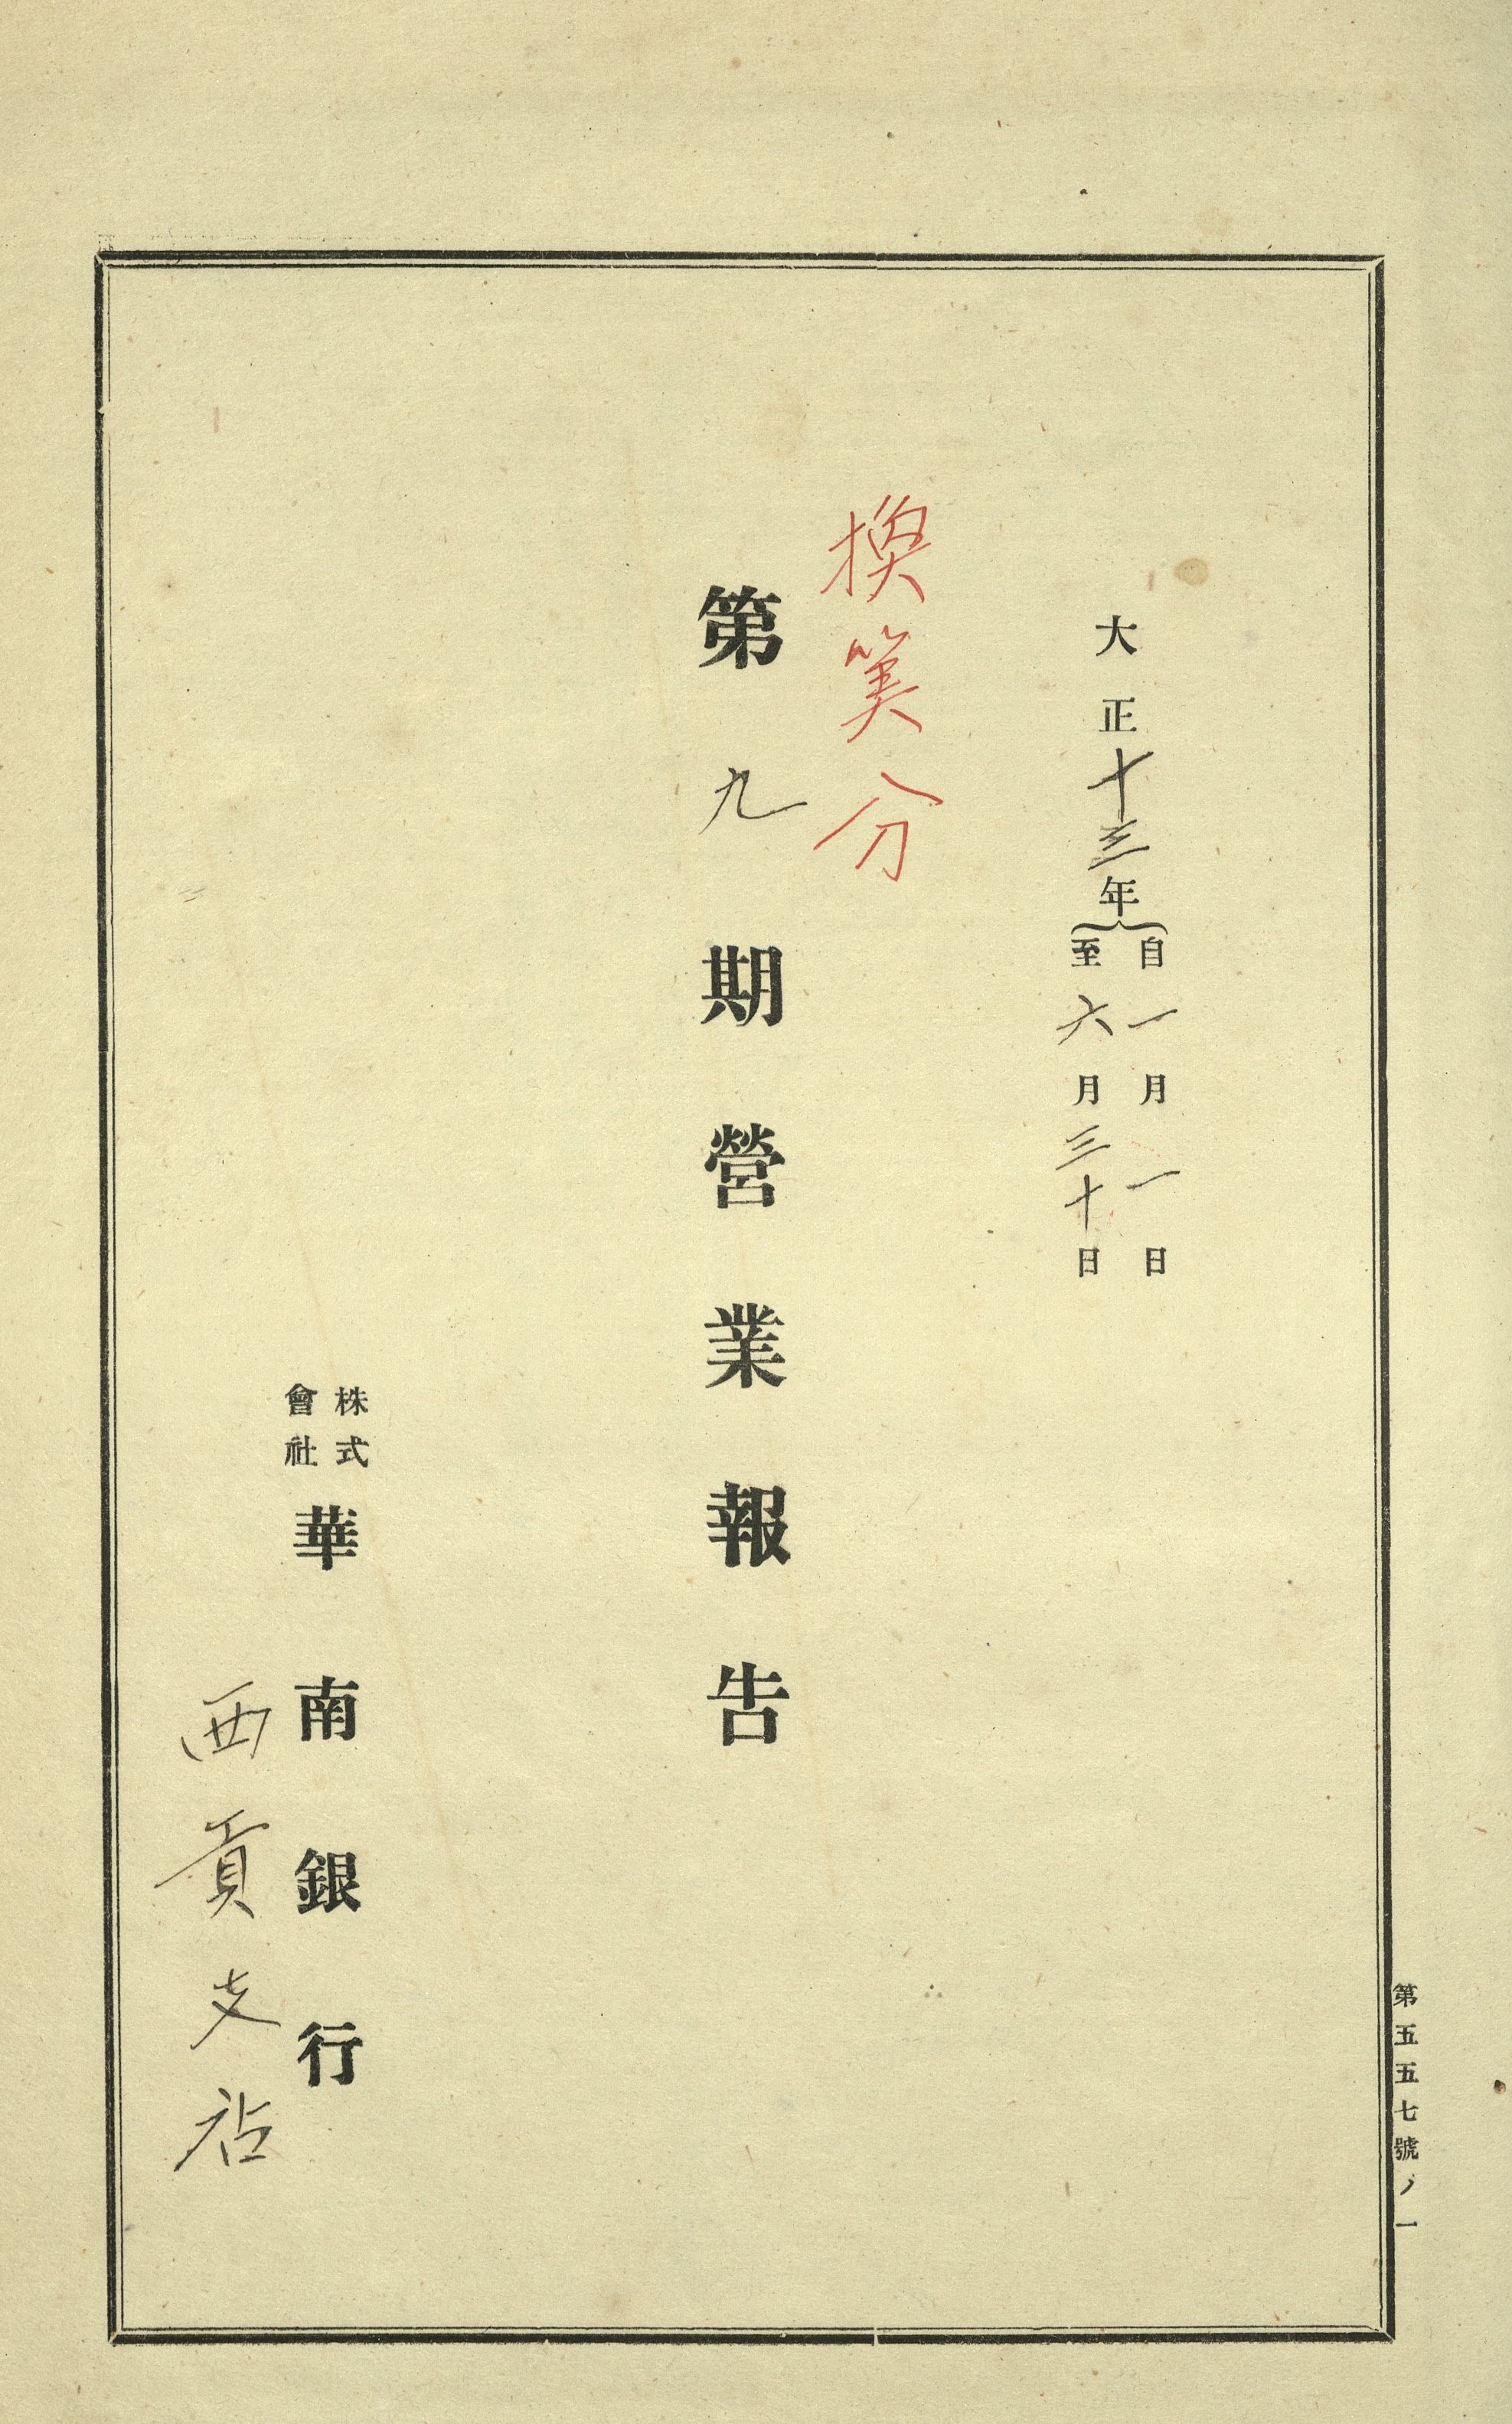 大正十三年
自一月一日
至六月三十日
換算分
第九期營業報告
株式
會社
華南銀行
西貢支店
第五五七號ノ一